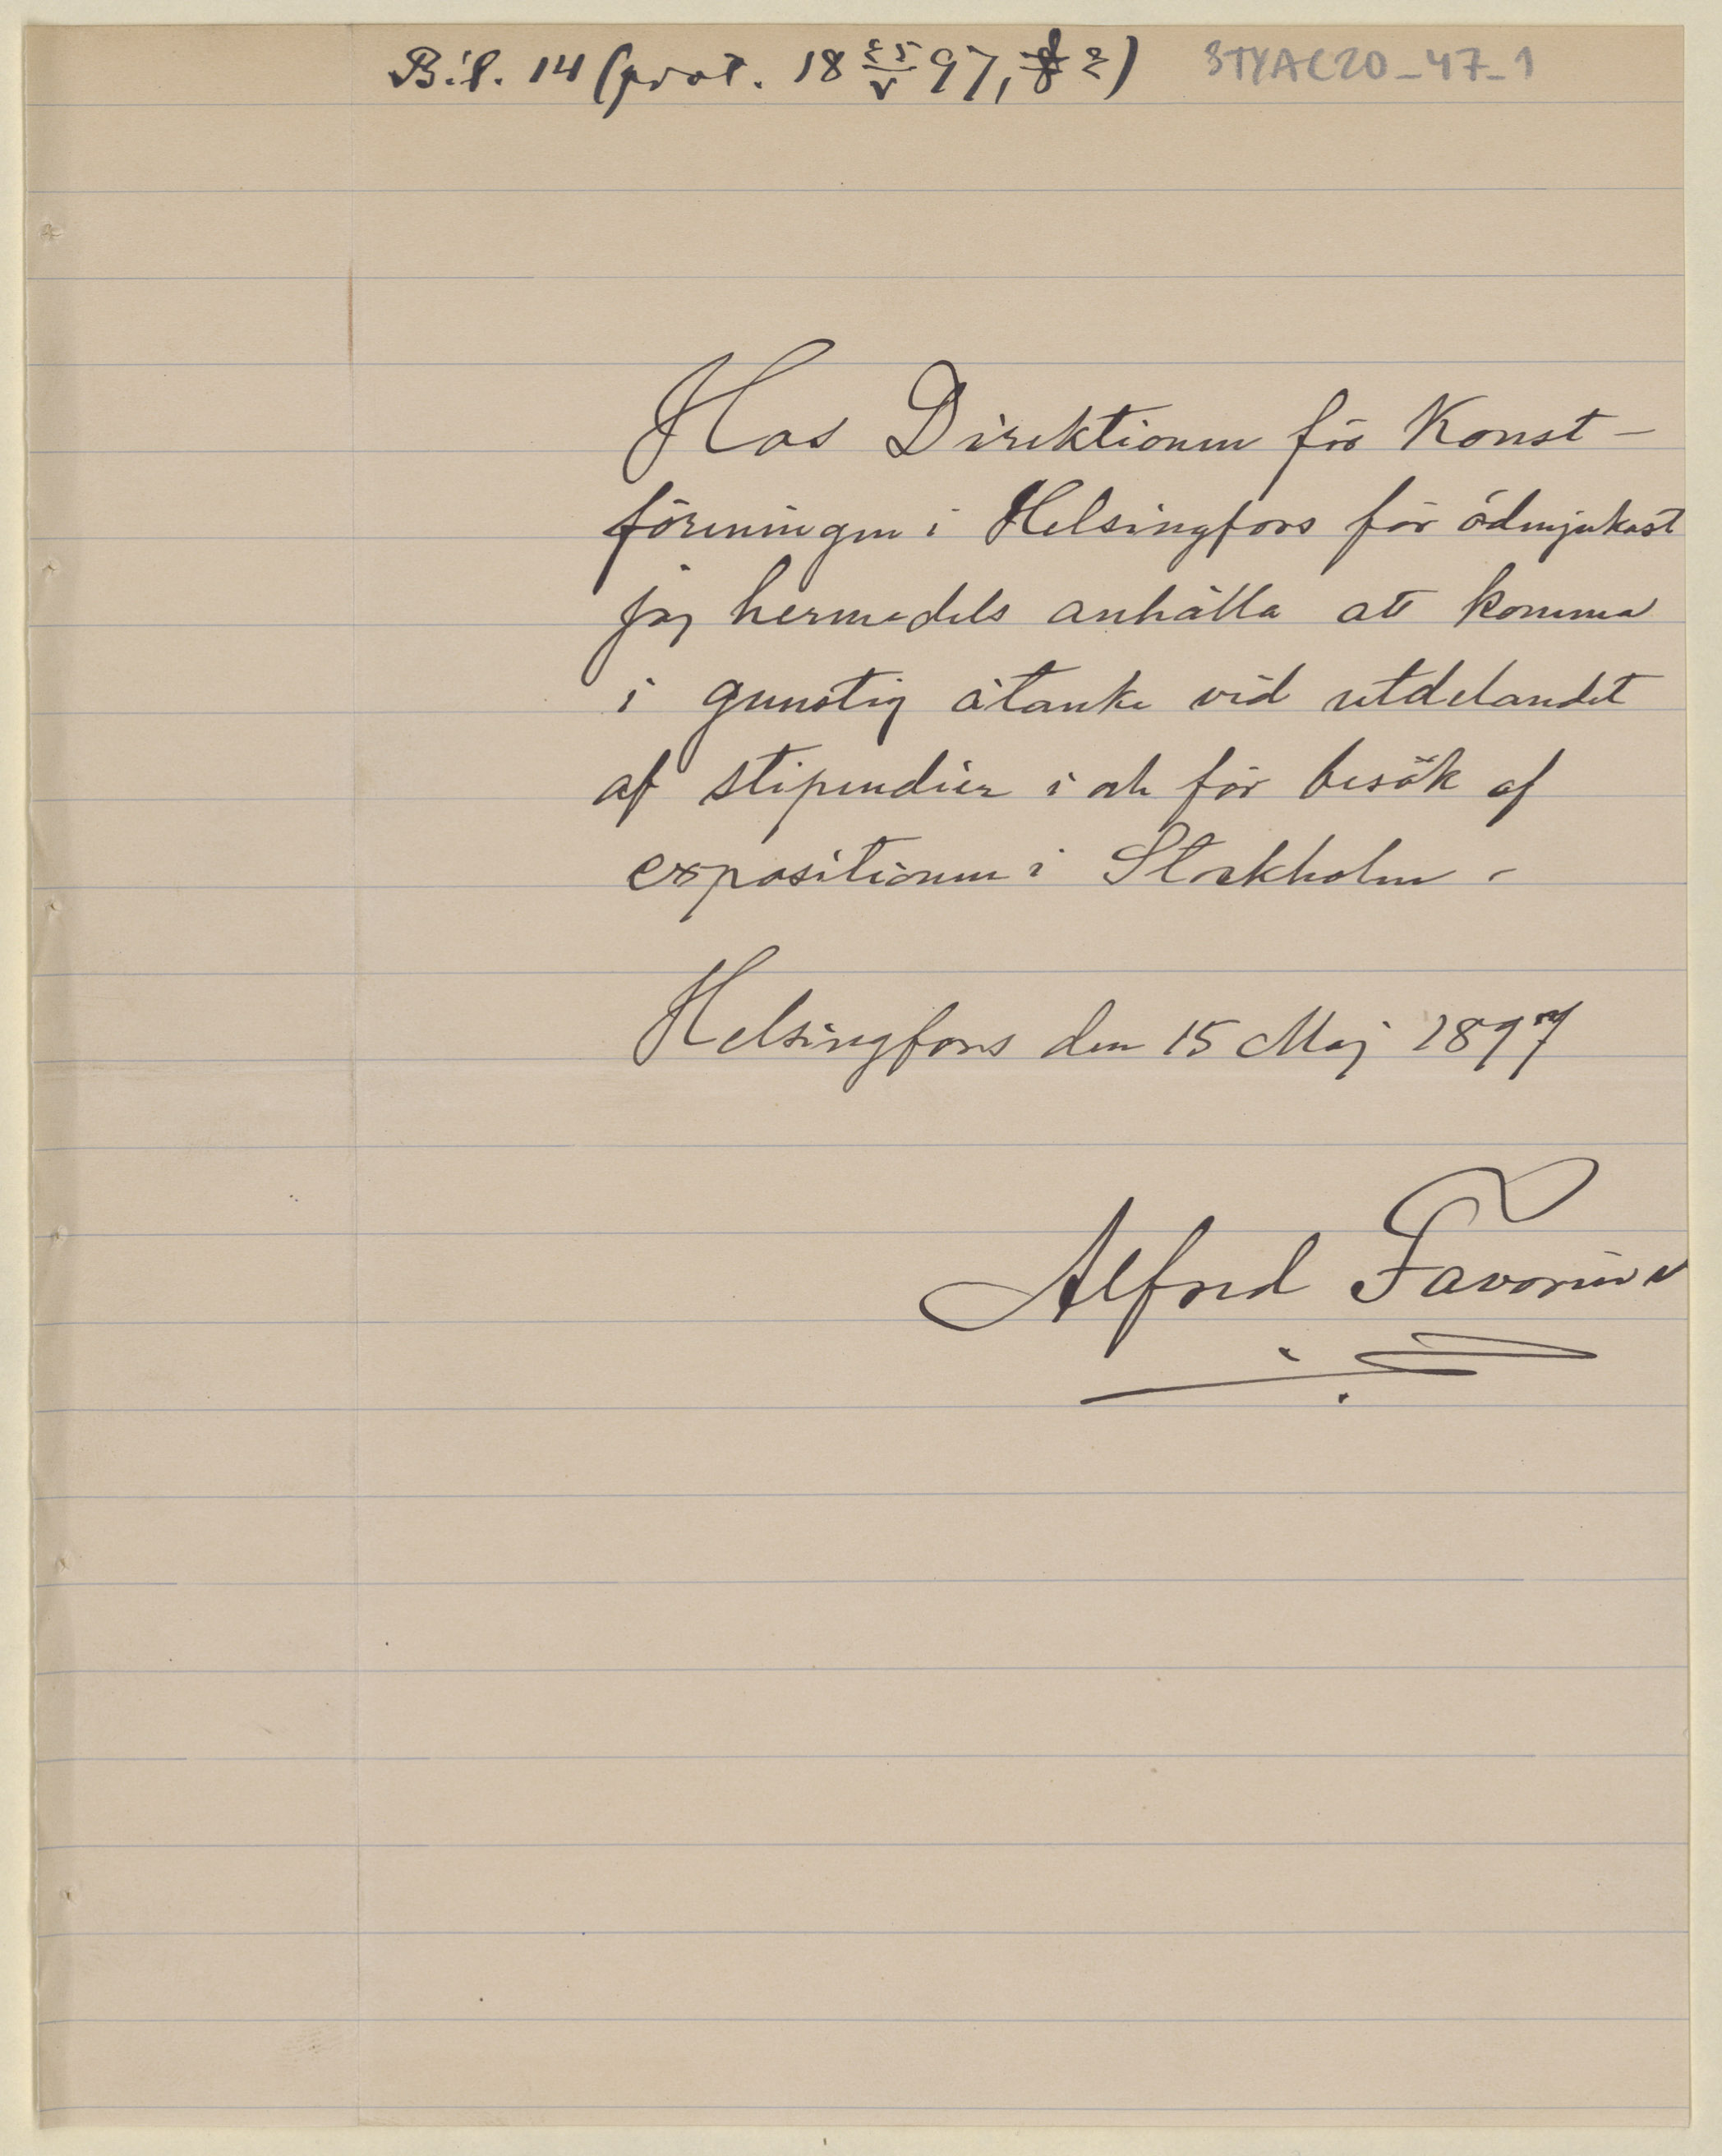 Bil. 14 (prot. 18 25/V 97, § 2) STYAC20_47_1
Hos Direktionen för Konst-
föreningen i Helsingfors får ödmjukast
jag hermedels anhålla att komma
i gunstig åtanke vid utdelandet
af stipendier i och för besök af
expositionen i Stockholm.
Helsingfors den 15 Maj 1897
Alfred Favorin